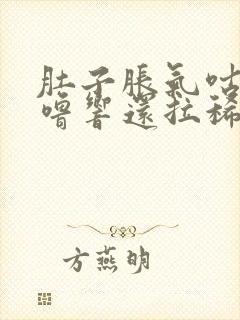 肚子脹氣咕
嚕響還拉稀
方燕明